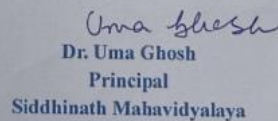 Uma Ghosh
Dr. Uma Ghosh
Principal
Siddhinath Mahavidyalaya